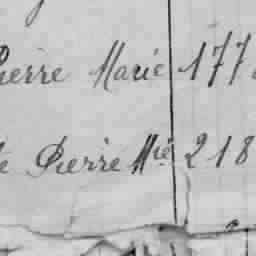 Pierre Marie 177
Pierre Mie 218